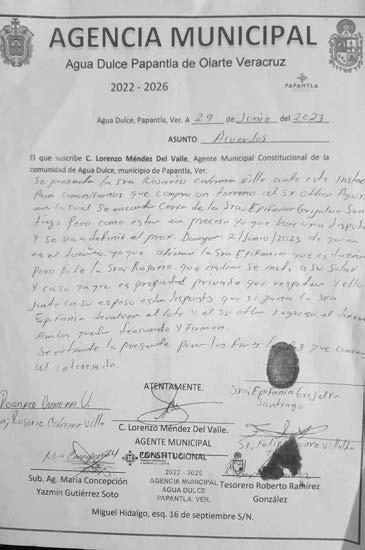 AGENCIA MUNICIPAL
Agua Dulce Papantla de Olarte Veracruz
2022 - 2026
PAPANTLA
Agua Dulce, Papantla, Ver. A 29 de Junio del 2023
ASUNTO: Acuerdos
El que suscribe C. Lorenzo Méndez Del Valle, Agente Municipal Constitucional de la
comunidad de Agua Dulce, municipio de Papantla, Ver.
Se presenta la Sra Rosario ante esta
Para que compro un terreno al Sr
en la cual se encuentra Cerca de la Sra, Epifania Grijalva San
tiago Pero como estan en proceso ya que hay una disputa
y se va a definir el prox. 2/Junio/2023 de quien
es el dueño, ya que afirma la Sra Epifania que es dueña
Pero Pide la Sra Rosario que nadien se meta a su Solar
y casa ya que es propiedad privada que respeten y ella
junto a su esposo estan dispuests que si gana la Sra
Epifania devuelven el lote y el Sr regresa el dinero
Ambos quedan deacuerdo y Firman.
Se extiende la presente para los fines que
al interesado.
ATENTAMENTE.
Sra, Epifania Grijalva
Santiago
Rosario
Rosario
C. Lorenzo Méndez Del Valle.
AGENTE MUNICIPAL
CONSTITUCIONAL
Sr. Felipe
2022 - 2025
AGENCIA MUNICIPAL
AGUA DULCE
PAPANTLA. VER.
Sub. Ag. María Concepción
Yazmin Gutiérrez Soto
Tesorero Roberto Ramírez
González
Miguel Hidalgo, esq. 16 de septiembre S/N.